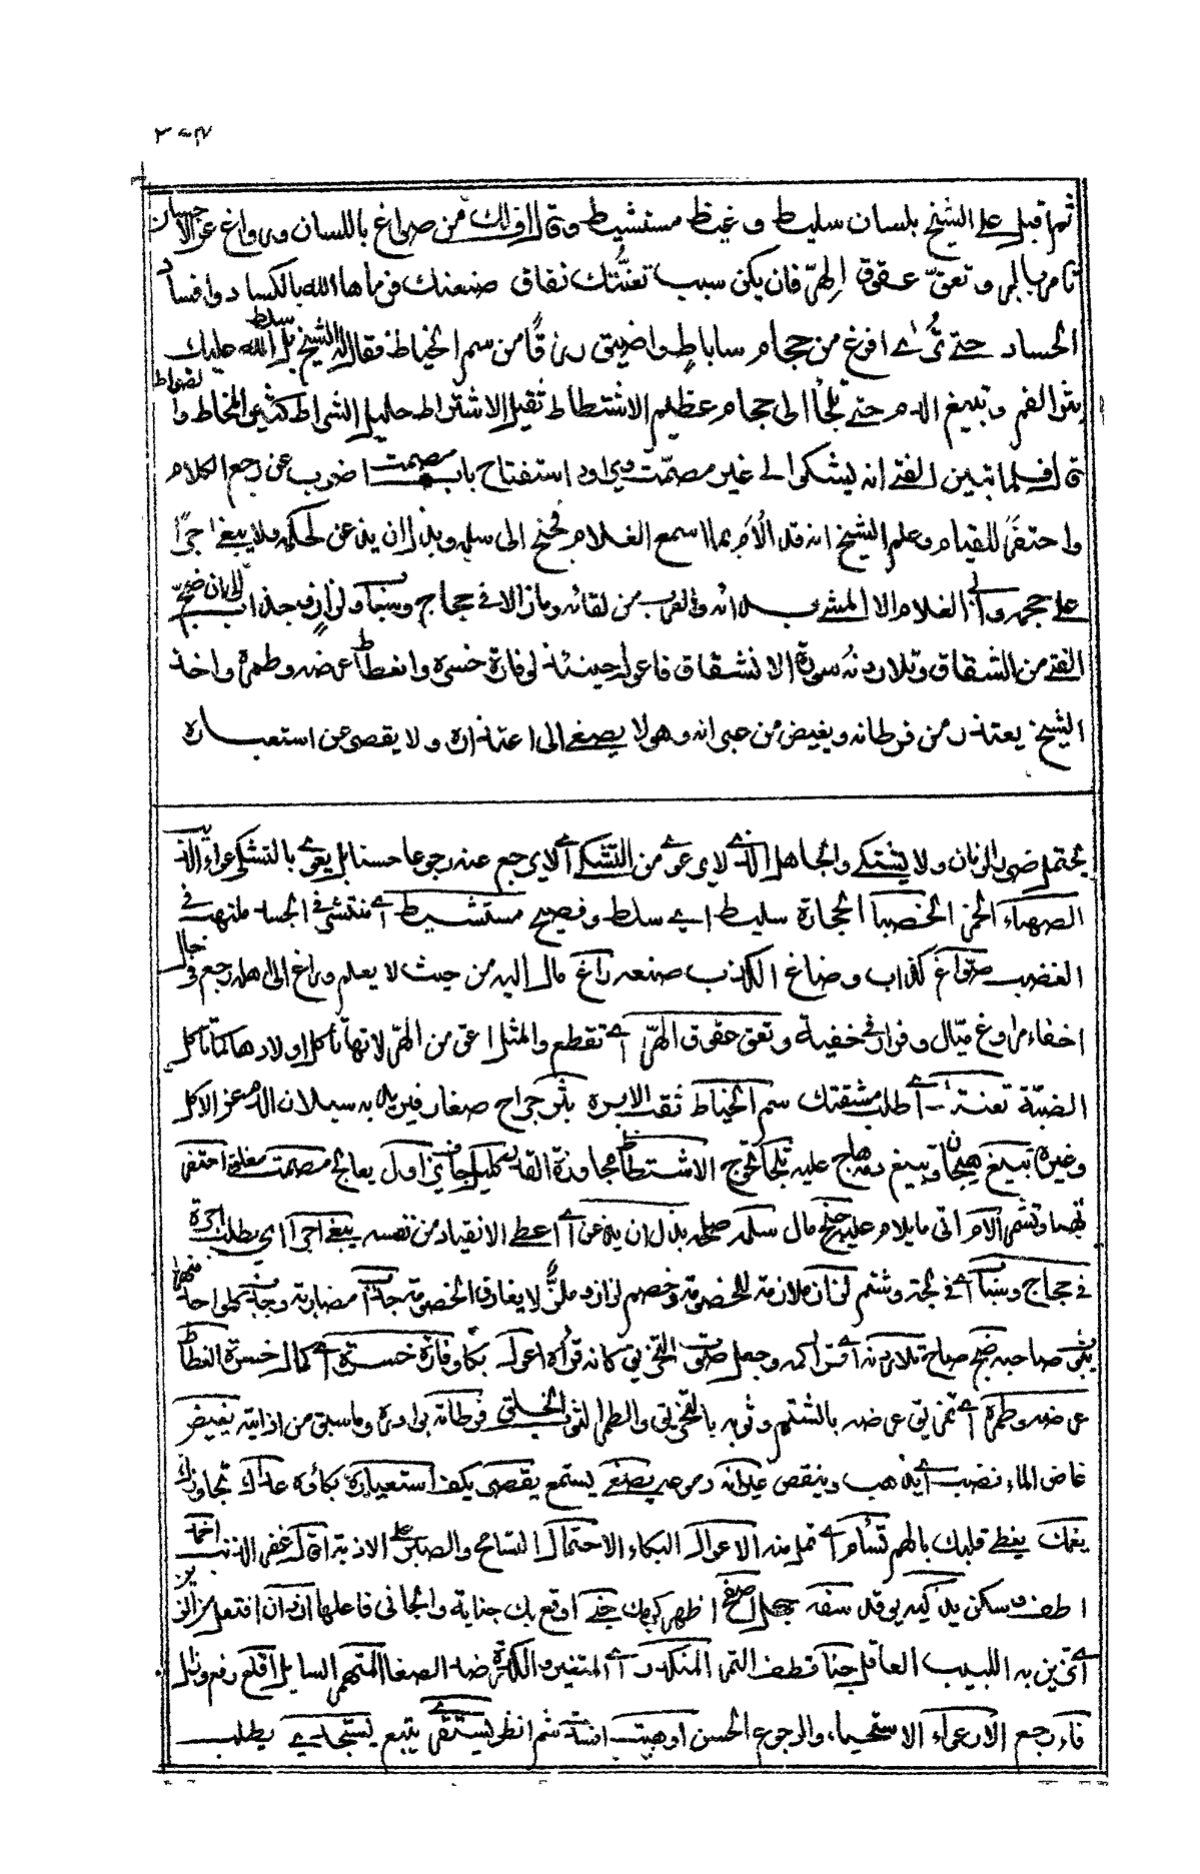 ثم اقبل على الشيخ بلسان سليط وغيظ مستشيط وقال اف لك من صواغ باللسان ورواغ عن الاحسان
تامر بالبر وتعق عقوق الهر فان يكن سبب تعنتك نفاق صنعتك فرماها الله بالكساد وافساد
الحساد حتى ترى افرغ من حجام ساباط واضيق رزقا من سم الخياط فقال له الشيخ بل سلط الله عليك
بثر الفم وتبيغ الدم حتى تلجأ الى حجام عظيم الاشتطاط ثقيل الاشتراط كليل المشراط كثير المخاط والضراط
قال فلما تبين الفتى انه يشكو الى غير مصمت ويراود استفتاح باب مصمت اضرب عن رجع الكلام
واحتفز للقيام وعلم الشيخ انه قد الام بما اسمع الغلام فجنح الى سلمه وبذل ان يذعن لحكمه ولا يبغي اجرا
على حجمه وابى الغلام الا المشي بدائه والهرب من لقائه وما زالا في حجاج وسباب ولزاز وجذاب الى ان ضج
الفتى من الشقاق وتلا ردنه سورة الانشقاق فاعول حينئذ لوفارة خسره وانعطاط عرضه وطمره واخذ
الشيخ يعتذر من فرطاته ويغيض من عبراته وهو لا يصغي الى اعتذاره ولا يقصر عن استعباره
يحتمل ضر الزمان ولا يشتكي والجاهل الذي لا يرعوي من التشكي اي لا يرجع عنه رجوعا حسنا بل يعوي بالتشكي عواء الذيب
الصهباء الخمر الحصباء الحجارة سليط اي سلط وفصيح مستشيط اي منتشر في الجسد ملتهب في
الغضب صواغ كذاب وصاغ الكذب صنعه راغ مال اليه من حيث لا يعلم وراغ الى اهله رجع في حال
اخفاء مراوغ ميال وفرار في خفية وتعق حقوق الهر اي تقطع والمثل اعق من الهر لانها تأكل اولادها كما تأكل
الضبة تعنتك اي طلب مشقتك سم الخياط ثقب الابرة بثر جراح صغار فيريد به سيلان الدم عن الاكل
وغيره تبيغ هيجان وتبيغ دمه هاج عليه تلجأ تحوج الاشتطاط مجاوزة القدر كليل جاف يراول يعالج مصمت مغلق احتفز
تهيأ وتشمر الام اتى ما يلام عليه جنح مال سلمه صلحه بذل ان يذعن اي اعطى الانقياد من نفسه يبغي اجرا اي يطلب اجرة
في حجاج وسباب اي في حجة وشتم لزاز ملازمة للخصومة وخصم لزاز وملز لا يفارق الخصومة جذاب اي مضاربة وجذب كل واحد منهما
بثوب صاحبه ضج صاح تلا ردنه اي قرأ كمه وجعل صوت التخريق كانه قراءة اعول بكا وفارة خسره اي كمال خسره انعطاط
عرضه وطمره اي تمزيق عرضه بالشتم وثوبه بالتخريق والطمر الثوب الخلق فرطاته بوادره وما سبق من اذايته يغيض
غاض الماء نضب اي يذهب وينقص عبراته دموعه يصغي يستمع يقصر يكف استعباره بكائه عداك تجاوزك
يغمك يغطي قلبك بالهم تسأم اي تمل منه الاعوال البكاء الاحتمال التسامح والصبر على الاذية اقال غفر الذنب اخمد
اطف وسكن يذكيه يوقد سفه جهل اصفح اظهر كرمك جنى اوقع بك جناية والجاني فاعلها ازدان افتعل من الزين
اي تزين به اللبيب العاقل جنا قطف التمر المنكدر اي المتغير والكدرة ضد الصفا المنهمر السايل اقلع رفع ونزل
فاء رجع الارعواء الاستحياء والرجوع الحسن اوهيت افسدت شم انظر يستقري يتبع يستجدي يطلب